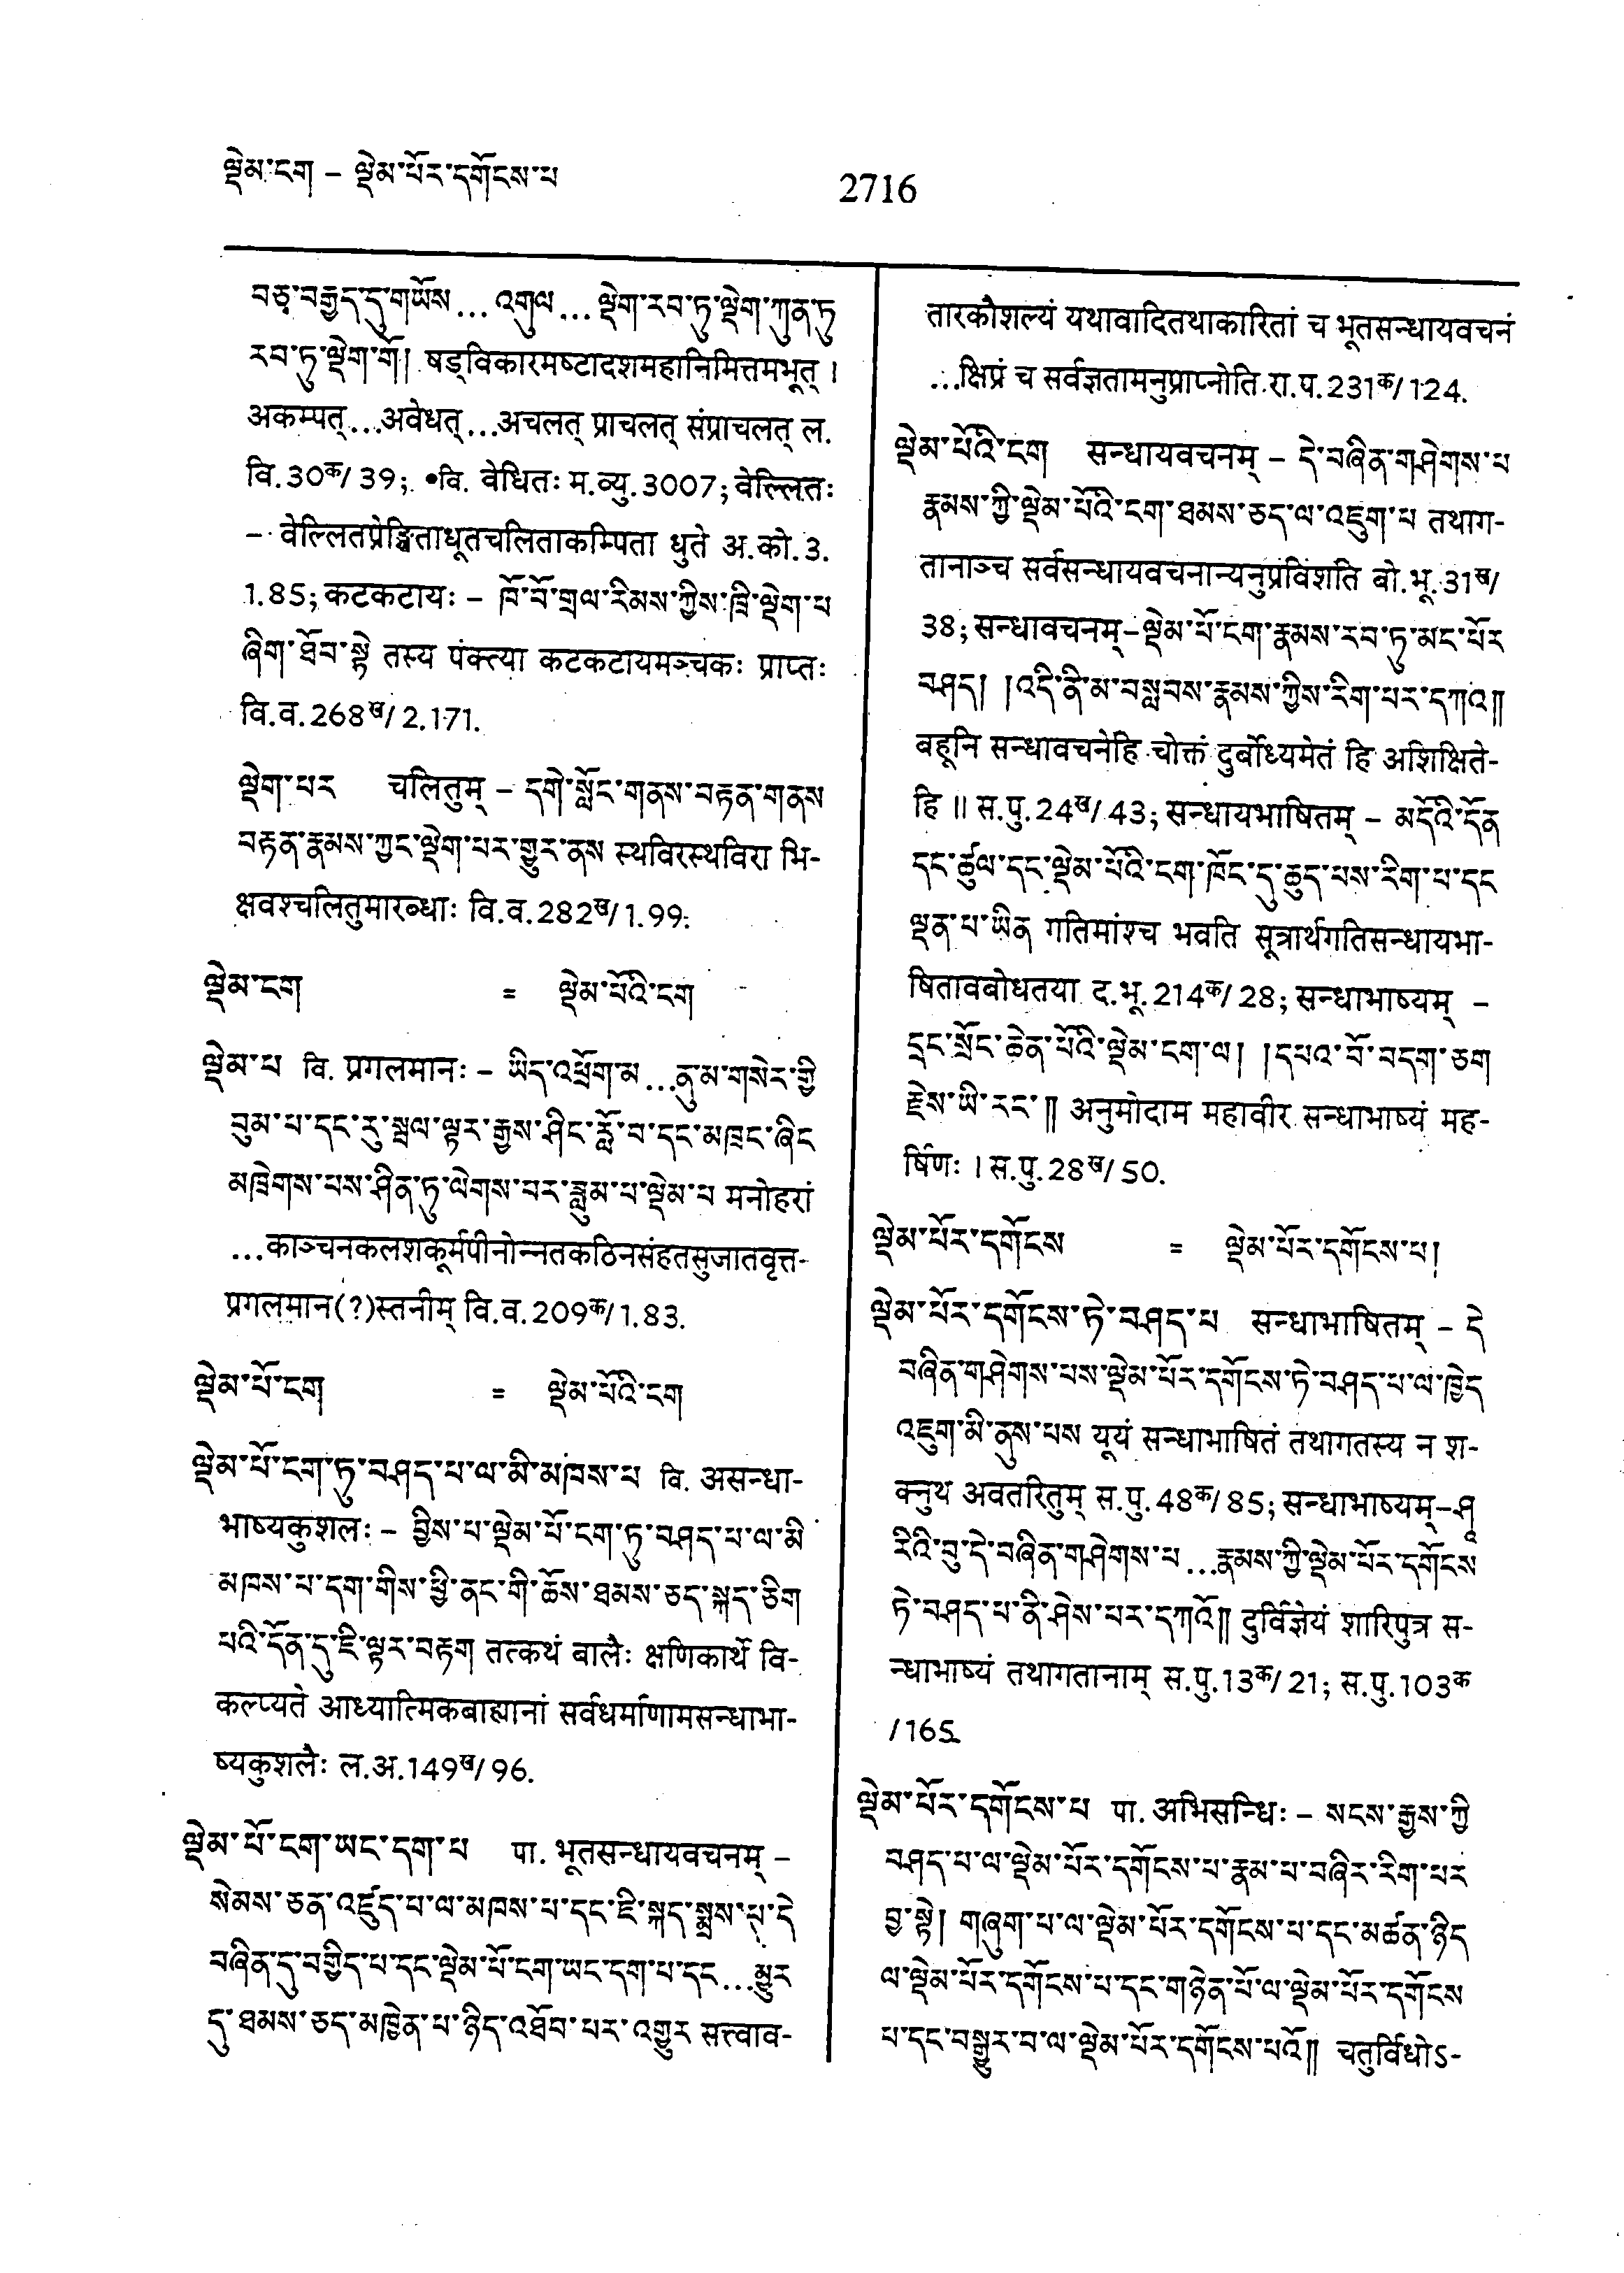 ལྡེམ་ངག – ལྡེམ་པོར་དགོངས་པ
2716
བཅྭ་བརྒྱད་དུ་གཡོས...འགུལ...ལྡེག་རབ་ཏུ་ལྡེག་ཀུན་ཏུ
རབ་ཏུ་ལྡེག་གོ། षड्विकारमष्टादशमहानिमित्तमभूत् ।
अकम्पत्...अवेधत्...अचलत् प्राचलत् संप्राचलत् ल.
वि.30क/39; •वि. वेधितः म.व्यु.3007; वेल्लितः
– वेल्लितप्रेङ्खिताधूतचलिताकम्पिता धुते अ.को.3.
1.85; कटकटायः – ཁོ་བོ་གྲལ་རིམས་ཀྱིས་ཁྲི་ལྡེག་པ
ཞིག་ཐོབ་སྟེ तस्य पंक्त्या कटकटायमञ्चकः प्राप्तः
वि.व.268ख/2.171.
ལྡེག་པར चलितुम् – དགེ་སློང་གནས་བརྟན་གནས
བརྟན་རྣམས་ཀྱང་ལྡེག་པར་གྱུར་ནས स्थविरस्थविरा भि-
क्षवश्चलितुमारब्धाः वि.व.282ख/1.99.
ལྡེམ་ངག = ལྡེམ་པོའི་ངག
ལྡེམ་པ वि. प्रगलमानः – ཡིད་འཕྲོག་མ...ནུ་མ་གསེར་གྱི
བུམ་པ་དང་རུ་སྦལ་ལྟར་རྒྱས་ཤིང་རློ་བ་དང་མཁྲང་ཞིང
མཁྲེགས་པས་ཤིན་ཏུ་ལེགས་པར་ཟླུམ་པ་ལྡེམ་པ मनोहरां
...काञ्चनकलशकूर्मपीनोन्नतकठिनसंहतसुजातवृत्त-
प्रगलमान(?)स्तनीम् वि.व.209क/1.83.
ལྡེམ་པོ་ངག = ལྡེམ་པོའི་ངག
ལྡེམ་པོ་ངག་ཏུ་བཤད་པ་ལ་མི་མཁས་པ वि. असन्धा-
भाष्यकुशलः – བྱིས་པ་ལྡེམ་པོ་ངག་ཏུ་བཤད་པ་ལ་མི
མཁས་པ་དག་གིས་ཕྱི་ནང་གི་ཆོས་ཐམས་ཅད་སྐད་ཅིག
པའི་དོན་དུ་ཇི་ལྟར་བརྟག तत्कथं बालैः क्षणिकार्थे वि-
कल्प्यते आध्यात्मिकबाह्यानां सर्वधर्माणामसन्धाभा-
ष्यकुशलैः ल.अ.149ख/96.
ལྡེམ་པོ་ངག་ཡང་དག་པ पा. भूतसन्धायवचनम् –
སེམས་ཅན་འཛུད་པ་ལ་མཁས་པ་དང་ཇི་སྐད་སྨྲས་པ་དེ
བཞིན་དུ་བགྱིད་པ་དང་ལྡེམ་པོ་ངག་ཡང་དག་པ་དང...མྱུར
དུ་ཐམས་ཅད་མཁྱེན་པ་ཉིད་འཐོབ་པར་འགྱུར सत्त्वाव-
तारकौशल्यं यथावादितथाकारितां च भूतसन्धायवचनं
...क्षिप्रं च सर्वज्ञतामनुप्राप्नोति रा.प.231क/124.
ལྡེམ་པོའི་ངག सन्धायवचनम् – དེ་བཞིན་གཤེགས་པ
རྣམས་ཀྱི་ལྡེམ་པོའི་ངག་ཐམས་ཅད་ལ་འཇུག་པ तथाग-
तानाञ्च सर्वसन्धायवचनान्यनुप्रविशति बो.भू.31ख/
38; सन्धावचनम्–ལྡེམ་པོ་ངག་རྣམས་རབ་ཏུ་མང་པོར
བཤད། །འདི་ནི་མ་བསླབས་རྣམས་ཀྱིས་རིག་པར་དཀའ༎
बहूनि सन्धावचनेहि चोक्तं दुर्बोध्यमेतं हि अशिक्षिते-
हि ॥ स.पु.24ख/43; सन्धायभाषितम् – མདོའི་དོན
དང་ཚུལ་དང་ལྡེམ་པོའི་ངག་ཁོང་དུ་ཆུད་པས་རིག་པ་དང
ལྡན་པ་ཡིན गतिमांश्च भवति सूत्रार्थगतिसन्धायभा-
षितावबोधतया द.भू.214क/28; सन्धाभाष्यम् –
དྲང་སྲོང་ཆེན་པོའི་ལྡེམ་ངག་ལ། །དཔའ་བོ་བདག་ཅག
རྗེས་ཡི་རང་༎ अनुमोदाम महावीर सन्धाभाष्यं मह-
र्षिणः । स.पु.28ख/50.
ལྡེམ་པོར་དགོངས = ལྡེམ་པོར་དགོངས་པ།
ལྡེམ་པོར་དགོངས་ཏེ་བཤད་པ सन्धाभाषितम् – དེ
བཞིན་གཤེགས་པས་ལྡེམ་པོར་དགོངས་ཏེ་བཤད་པ་ལ་ཁྱེད
འཇུག་མི་ནུས་པས यूयं सन्धाभाषितं तथागतस्य न श-
क्नुथ अवतरितुम् स.पु.48क/85; सन्धाभाष्यम्–ཤཱ
རིའི་བུ་དེ་བཞིན་གཤེགས་པ...རྣམས་ཀྱི་ལྡེམ་པོར་དགོངས
ཏེ་བཤད་པ་ནི་ཤེས་པར་དཀའོ༎ दुर्विज्ञेयं शारिपुत्र स-
न्धाभाष्यं तथागतानाम् स.पु.13क/21; स.पु.103क
/165.
ལྡེམ་པོར་དགོངས་པ पा. अभिसन्धिः – སངས་རྒྱས་ཀྱི
བཤད་པ་ལ་ལྡེམ་པོར་དགོངས་པ་རྣམ་པ་བཞིར་རིག་པར
བྱ་སྟེ། གཞུག་པ་ལ་ལྡེམ་པོར་དགོངས་པ་དང་མཚན་ཉིད
ལ་ལྡེམ་པོར་དགོངས་པ་དང་གཉེན་པོ་ལ་ལྡེམ་པོར་དགོངས
པ་དང་བསྒྱུར་བ་ལ་ལྡེམ་པོར་དགོངས་པའོ༎ चतुर्विधोऽ-